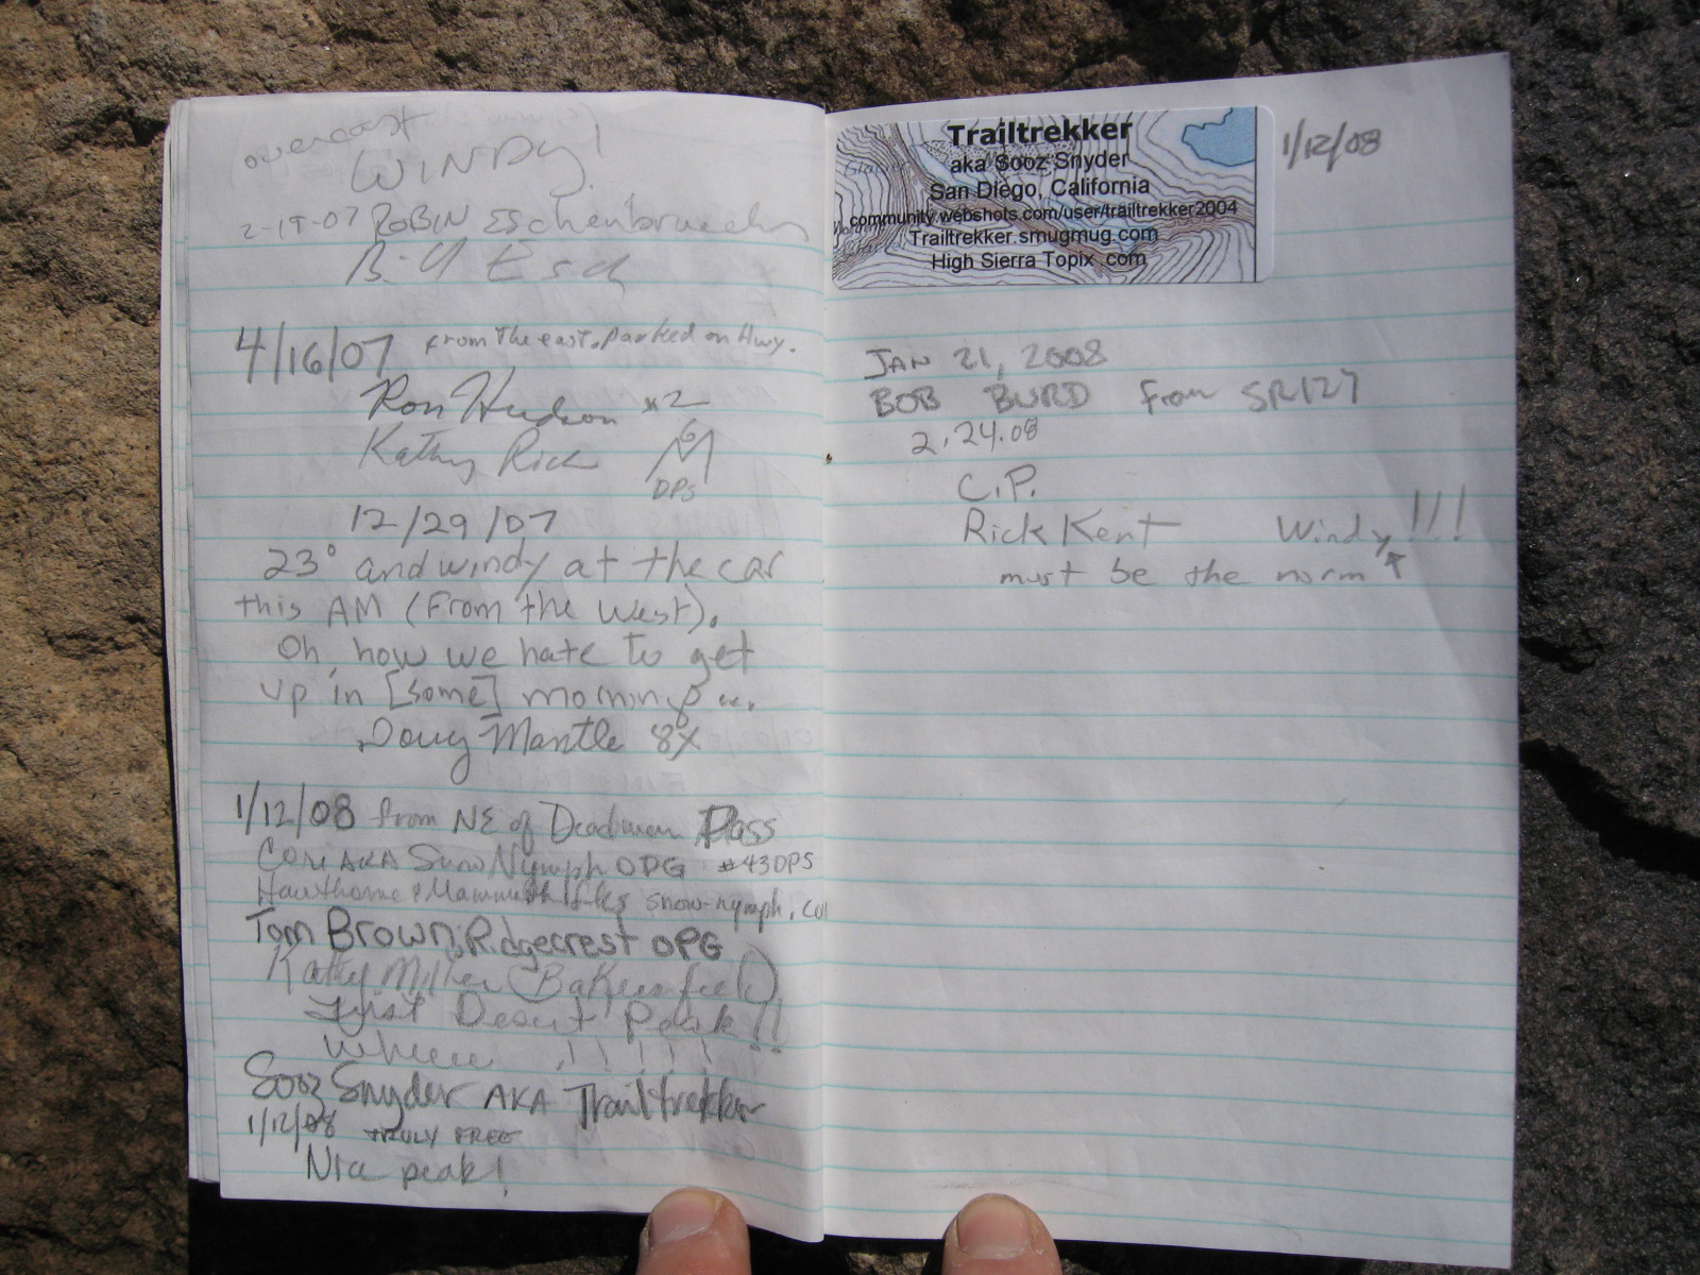 overcast
WINDY!
2-19-07 ROBIN Eschenbruecher
Bill Esch
4/16/07 from the east, parked on Hwy.
Ron Hudson x2
Kathy Rich
G
DPS
12/29/07
23° and windy at the car
this AM (From the West).
Oh, how we hate to get
up in [some] morning...
Doug Mantle 8X
1/12/08 from NE of Deadman Pass
Cori AKA SnowNymph OPG #43DPS
Hawthorne & Mammoth Lks snow-nymph.com
Tom Brown, Ridgecrest OPG
Kathy Miller (Bakersfield)
First Desert Peak!!
Whew !!!!!
Sooz Snyder AKA Trailtrekker
1/12/08 TRULY FREE
Nice peak!
Trailtrekker
aka Sooz Snyder
San Diego, California
community.webshots.com/user/trailtrekker2004
Trailtrekker.smugmug.com
High Sierra Topix .com
1/12/08
JAN 21, 2008
BOB BURD from SR127
2.24.08
C.P.
Rick Kent Windy!!!
must be the norm